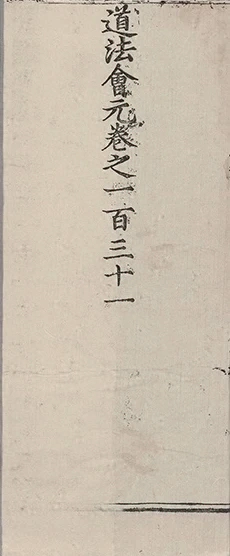 道法會元卷之一百三十一